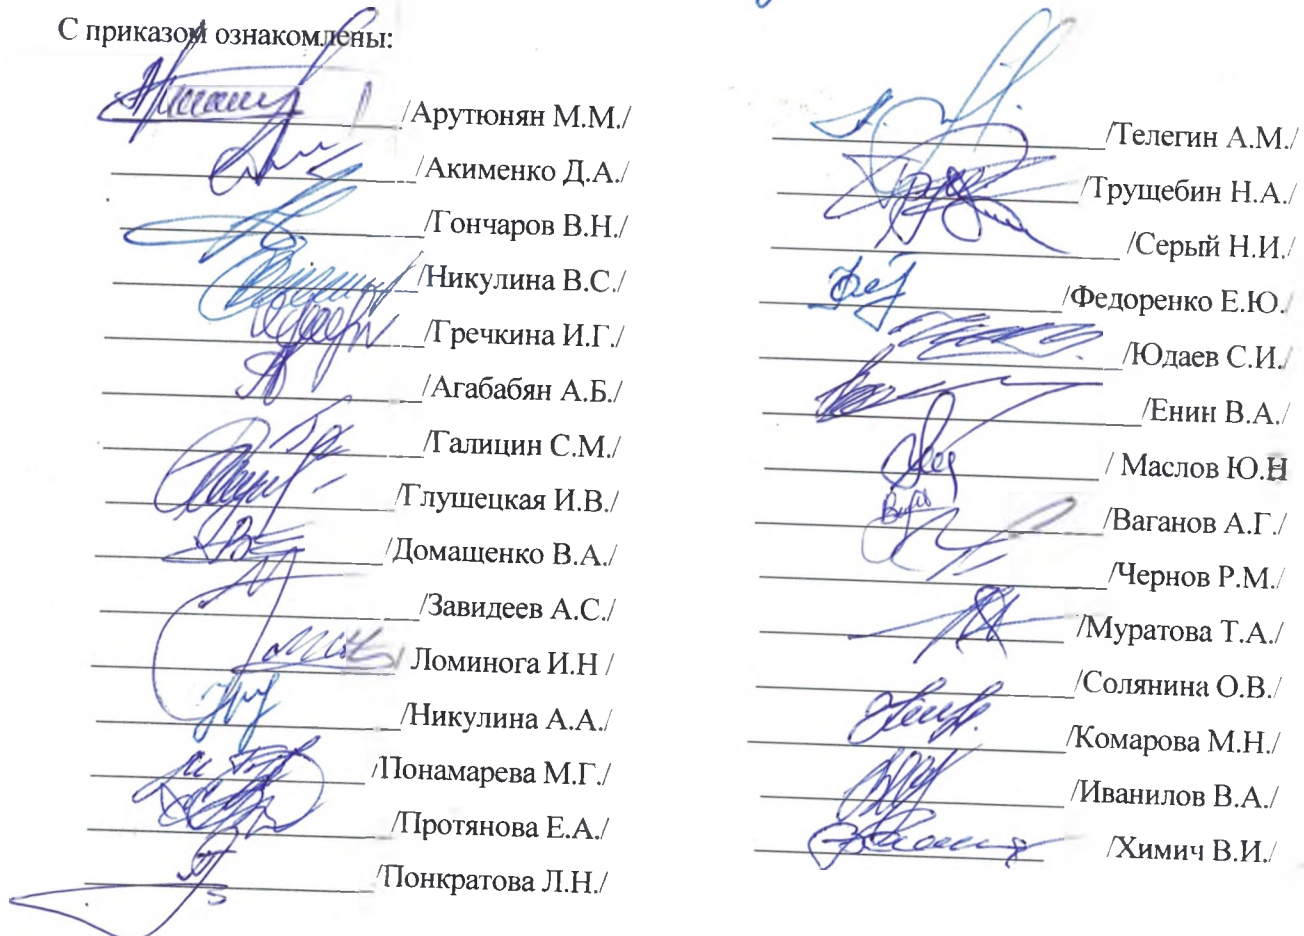 С приказом ознакомлены:
/Арутюнян М.М./
/Акименко Д.А./
/Гончаров В.Н./
/Никулина В.С./
/Гречкина И.Г./
/Агабабян А.Б./
/Галицин С.М./
/Глушецкая И.В./
/Домащенко В.А./
/Завидеев А.С./
Ломинога И.Н /
/Никулина А.А./
/Понамарева М.Г./
/Протянова Е.А./
/Понкратова Л.Н./
/Телегин А.М./
/Трущебин Н.А./
/Серый Н.И./
/Федоренко Е.Ю./
/Юдаев С.И./
/Енин В.А./
/ Маслов Ю.Н
/Ваганов А.Г./
/Чернов Р.М./
/Муратова Т.А./
/Солянина О.В./
/Комарова М.Н./
/Иванилов В.А./
/Химич В.И./